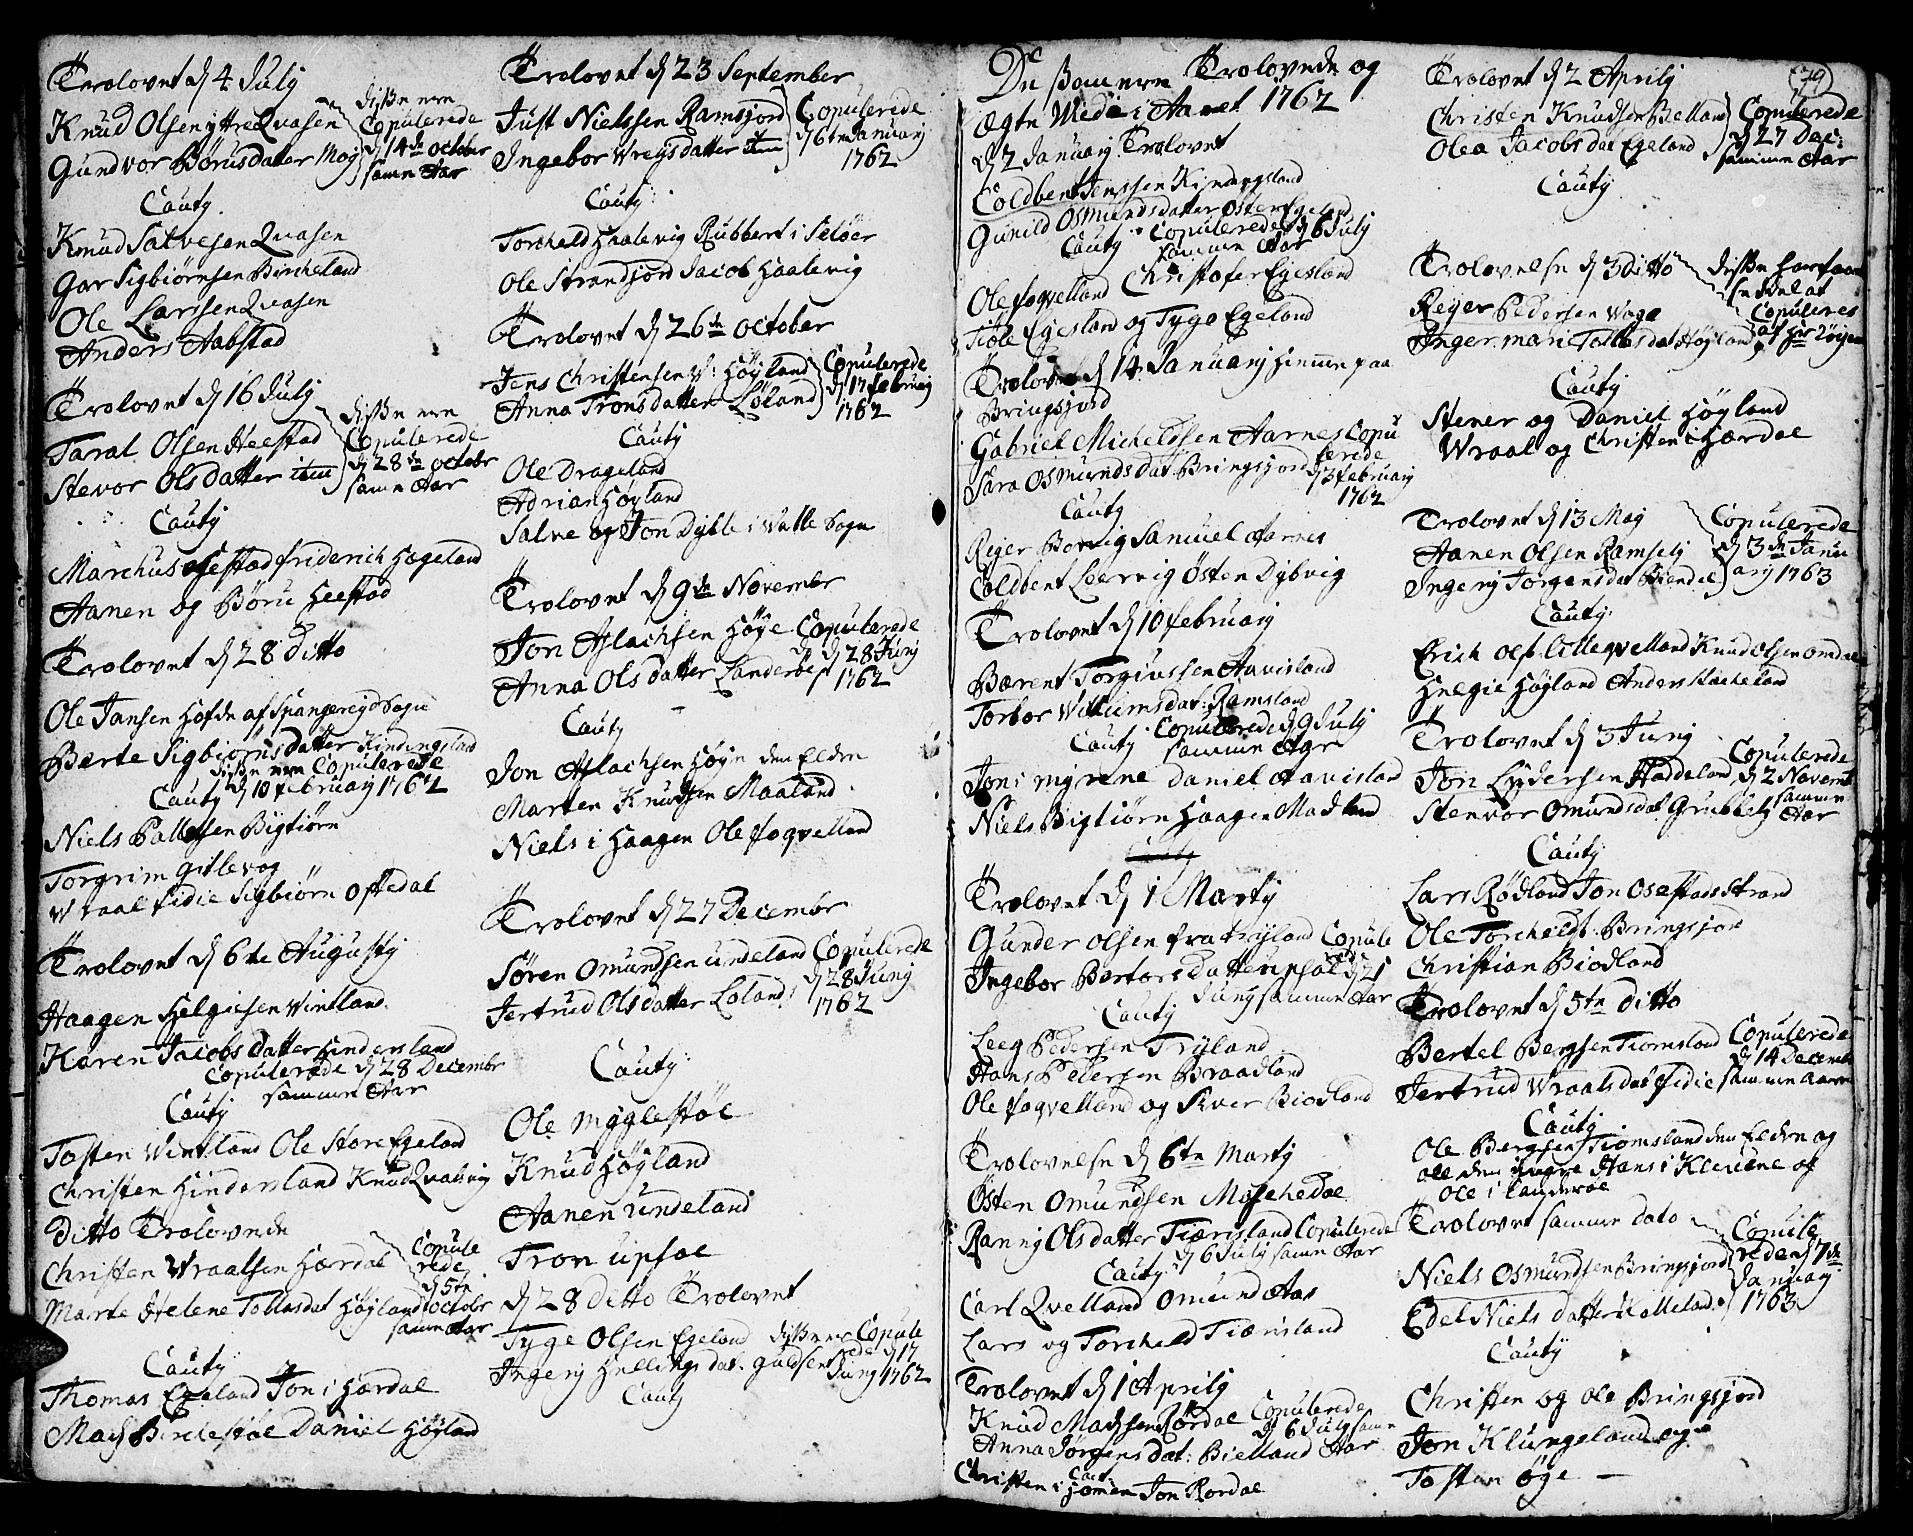 Trolovet d 4 July
Knud Olsen yttre Qvasen
Gundvor Børusdatter Moy
disse ere
Copulerede
d 14de october
samme Aar
Cauty
Knud Salvesen Qvasen
Gar Sigbiørnsen Bircheland
Ole Larssen Qvasen
Anders Aabstad
Trolovet d 16 July
Taral Olsen Heestad
Stevor Olsdatter item
disse ere
Copulerede
d 28de octobr
samme Aar
Cauty
Marchus Heestad friderich Hægeland
Aanen og Børu Heestad
Trolovet d 28 Ditto
Ole Jansen Hofde af Spangereid Sogn
Berte Sigbiørnsdatter Kindingsland
disse ere Copulerede
Cauty d 10 february 1762
Niels Pallessen Bigtiørn
Torgrim Gitlevog
Wraal fidie Sigbiørn Oftedal
Trolovet d 6te Augusty
Haagen Helgiesen Vintland
Karen Jacobsdatter Hindersland
Copulerede d 28 Decembr
samme Aar
Cauty
Tosten Wintland Ole Store Egeland
Christen Hindersland Knud Qvalevig
Ditto Trolovede
Christen Wraalsen Hærdal
Marte Helene Tollasdat Høyland
Copule
rede
d 5te
octobr
samme Aar
Cauty
Thomas Egeland Jon i Hærdal
Mads Birkestøl Daniel Høyland
Trolovet d 23 September
Just Nielssen Ramsjord
Ingebor Wregsdatter item
Copulerede
d 6te January
1762
Cauty
Torcheld Haalevig Rubbert i Seløer
Ole Strandfjord Jacob Haalevig
Trolovet d 26de october
Jens Christensen V: Høyland
Anna Tronsdatter Løland
Copulerede
d 17 february
1762
Cauty
Ole Drageland
Adrian Høyland
Salve og Jon Dyble i Valle Sogn
Trolovet d 9de Novembr
Jon Aslachsen Høye
Anna Olsdatter Landerøe
Copulerede
d 28 Juny
1762
Cauty
Jon Aslachsen Høye den Eldre
Marten Knudsen Maaland
Niels i Haagen Ole foqvelland
Trolovet d 27 Decembr
Søren Omundsen Undeland
Jertrud Olsdatter Loland
Copulerede
d 28 Juny
1762
Cauty
Ole Myglestøl
Knud Høyland
Aanen Undeland
Tron Upsal
d 28 Ditto Trolovet
Tyge Olsen Egeland
Ingerj Hellingsdat. Guldsen
disse ere Copule
rede d 17
Juny 1762
Cauty
De som ere Trolovede og
Ægte Wiede i Aaret 1762
d 2 January Trolovet
Coldbent Jenssen Kindingsland
Gunild Osmundsdatter Øster Egeland
Cauty Copulerede d 6 July
samme Aar
Ole foqvelland Christofer Egesland
Tiøle Egesland og Tyge Egeland
Trolovet d 14 January hiemme paa
Bringsjord
Gabriel Michelssen Aarnes
Sara Osmundsdat. Bringsjord
Copu
lerede
d 3 february
1762
Cauty
Reyer Borvig Samuel Aarnes
Coldbent Leervig Østen Dybvig
Trolovet d 10 february
Bærent Torgiussen Aavisland
Torbor Willumsdat: Ramsland
Cauty Copulerede d 9 July
samme Aar
Jon i myrene Daniel Aavisland
Niels Bigtiørn Haagen Madland
Trolovet d 1 Marty
Gunder Olsen fra Tryland
Ingebor Bertorsdatter Upsal
Copule
rede d 21
Juny samme Aar
Cauty
Leeg Pedersen Tryland
Hans Pedersen Braadland
Ole foqvelland og Siver Biodland
Trolovelse d 6te Marty
Østen Omundsen Moschedal
Ranny Olsdatter Tiomsland Copulerede
d 6 July samme Aar
Cauty
Carl Qvelland Omund Aas
Lars og Torcheld Tiomsland
Trolovet d 1 Aprily
Knud Madssen Rørdal
Anna Jorgensdat: Bielland
Copulerede
d 6 July samme
Aar
Caut:
Christen i Homen Jon Rordal
79
Trolovet d 2 Aprily
Christen Knudsen Bielland
Olea Jacobsdat Egeland
Copulerede
d 27 Dec:
samme Aar
Cauty
Trolovelse d 3 Ditto
Reyer Pedersen Woge
Inger marie Tollasdat Høyland
Copuleres
Cauty
Stener og Daniel Høyland
Wraal og Christen i Hærdal
Trolovet d 13 May
Aanen Olsen Ramsely
Ingerj Jorgensdat Birndal
Copulerede
d 3de Janu
ary 1763
Cauty
Erich Ols. Lilleqvelland Knud Olsen Omdal
Helgie Høyland Anders Stocheland
Trolovet d 3 Juny
Jon Lydersen Haddeland
Stenvor Omundsdat Grubbely
Copulerede
d 2 Novembr
samme
Aar
Cauty
Lars Rødland Jon Osestad Strand
Ole Torcheldt: Bringsjord
Christian Biodland
Trolovet d 5te Ditto
Bertel Bergsen Tiomsland
Jertrud Wraalsdat fidie
Copulerede
d 14 Decembr
samme Aar
Cauty
Ole Bergsen Tiomsland den Eldre og
Ole den yngre Hans i Klevene og
Ole i Landerøe
Trolovet samme dato
Niels Osmundsen Bringsjord
Edel Niels datter Kalleland
Copule
rede d 7de
January
1763
Cauty
Christen og Ole Bringsjord
Jon Klungeland og
Tosten Øye